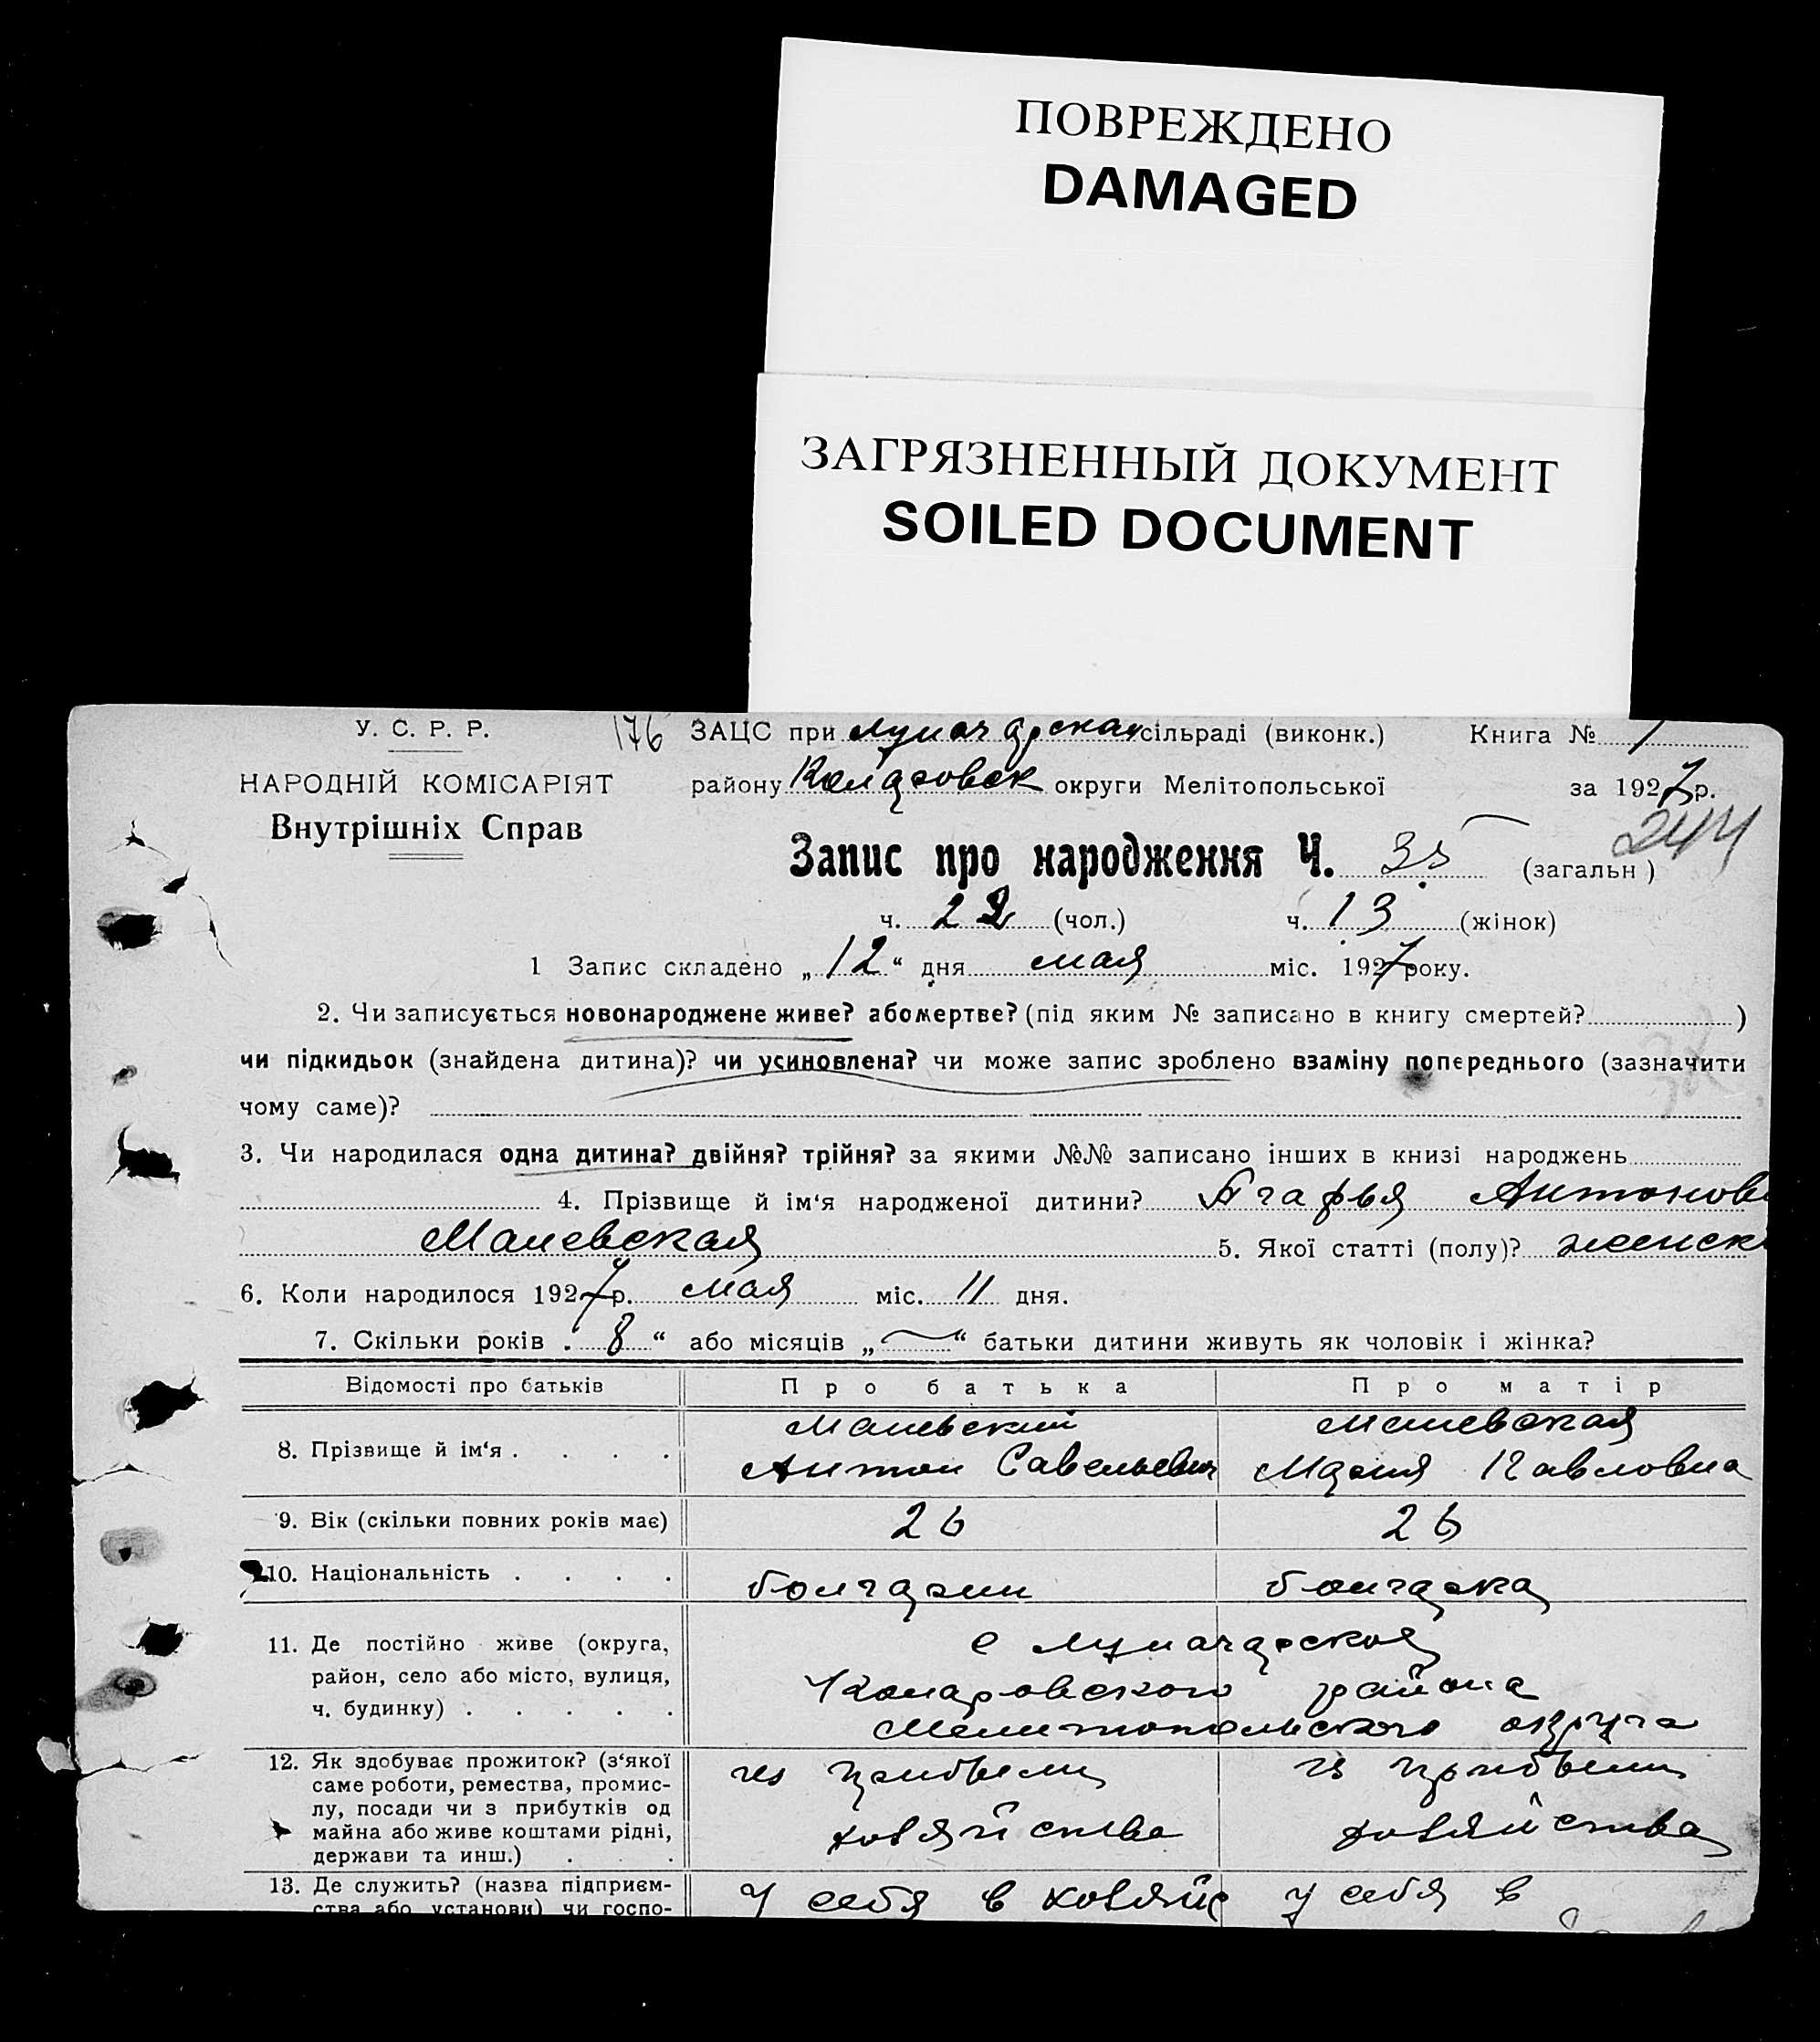 ПОВРЕЖДЕНО
DAMAGED
ЗАГРЯЗНЕННЫЙ ДОКУМЕНТ
SOILED DOCUMENT
У. С. Р. Р. 176 ЗАЦС при сільраді (виконк.) Книга № 1
НАРОДНІЙ КОМІСАРІЯТ району округи Мелітопольської за 1927 р.
Внутрішніх Справ 244
Запис про народження Ч. 35 (загальн)
ч. 22 (чол.) ч. 13 (жінок)
1 Запис складено „12“ дня мая міс. 1927 року.
2. Чи записується новонароджене живе? або мертве? (під яким № записано в книгу смертей? )
чи підкидьок (знайдена дитина)? чи усиновлена? чи може запис зроблено взаміну попереднього (зазначити
чому саме)?
3. Чи народилася одна дитина? двійня? трійня? за якими №№ записано інших в книзі народжень
4. Прізвище й ім‘я народженої дитини? Агафья Антонов
Маневская 5. Якої статті (полу)? женск
6. Коли народилося 1927 р. мая міс. 11 дня.
7. Скільки років „ 8 “ або місяців „ — “ батьки дитини живуть як чоловік і жінка?
Відомості про батьків Про батька Про матір
Маневский Маневская
8. Прізвище й ім‘я . . . . Антон Савельевич Мария Павловна
9. Вік (скільки повних років має) 26 26
10. Національність . . . . болгарин болгарка
11. Де постійно живе (округа, с Луначарская
район, село або місто, вулиця, района
ч. будинку) . . . . . Мелитопольского округа
12. Як здобуває прожиток? (з‘якої из прибыли из прибыли
саме роботи, ремества, промис-
лу, посади чи з прибутків од
майна або живе коштами рідні, хозяйства хозяйства
держави та инш.) . . .
13. Де служить? (назва підприєм- у себя в хозяйс у себя в
ства або установи) чи госпо-